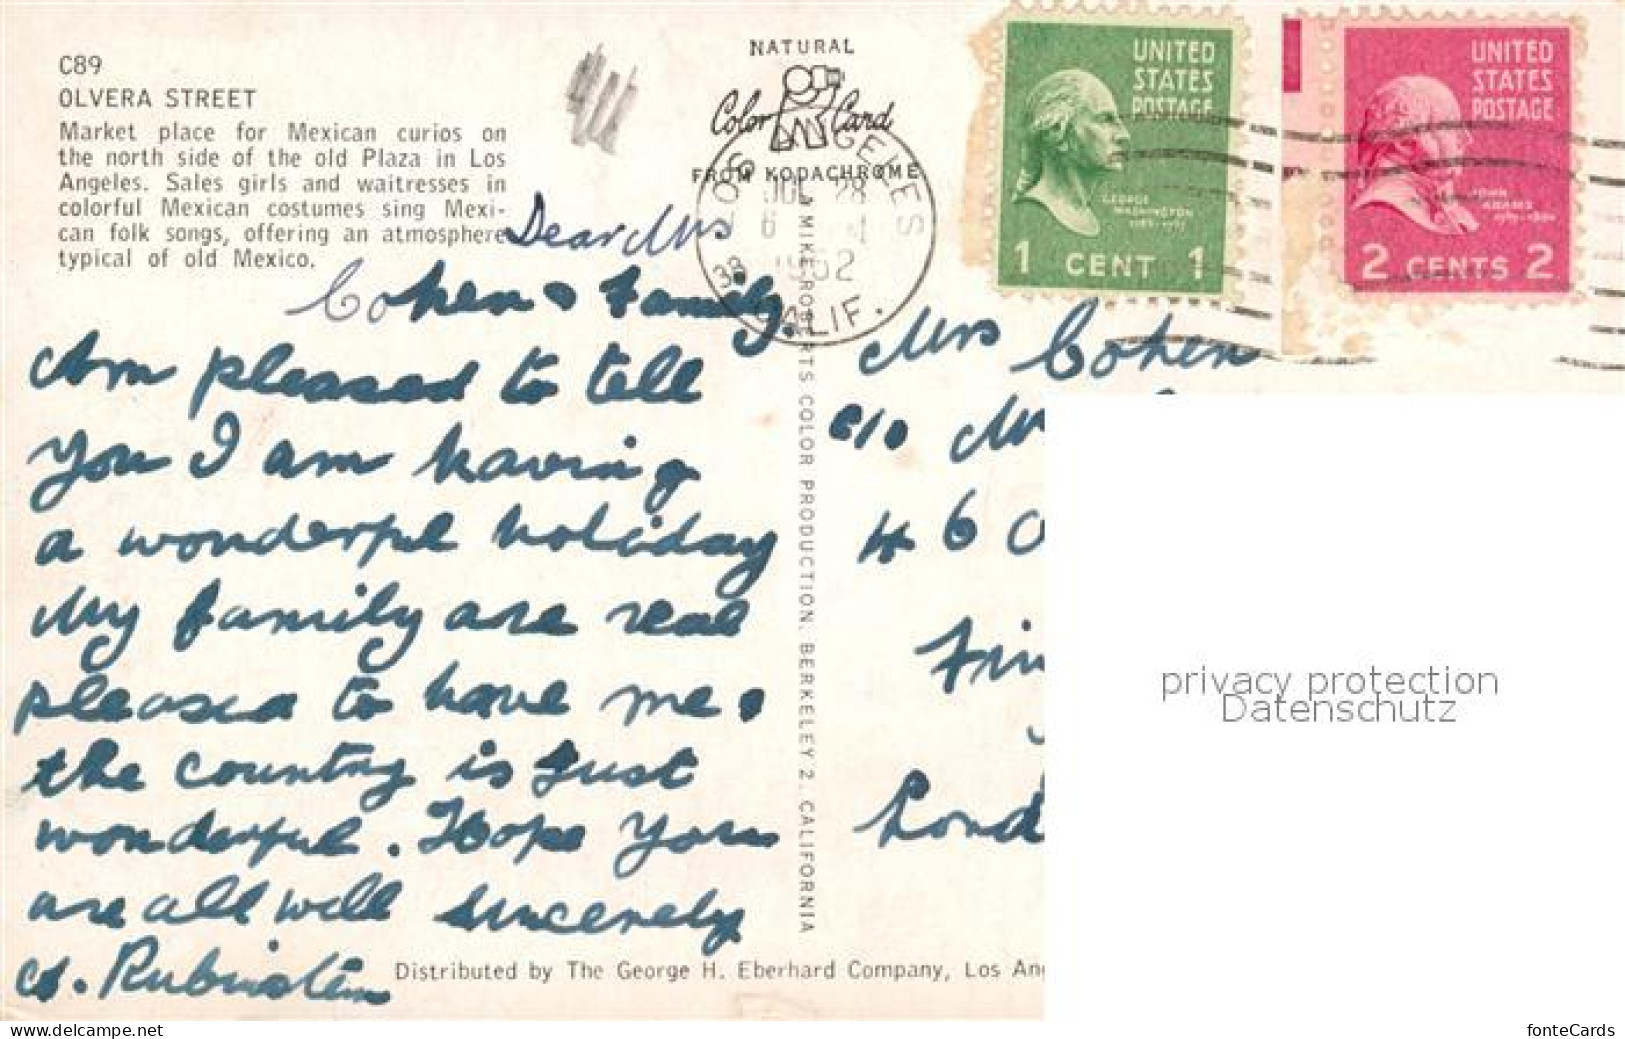 C89
OLVERA STREET
Market place for Mexican curios on
the north side of the old Plaza in Los
Angeles. Sales girls and waitresses in
colorful Mexican costumes sing Mexi-
can folk songs, offering an atmosphere
typical of old Mexico.
NATURAL
Color Card
FROM KODACHROME
LOS ANGELES
38
CALIF.
JUL 28
6
1952
UNITED
STATES
POSTAGE
GEORGE
WASHINGTON
1 CENT 1
UNITED
STATES
POSTAGE
JOHN
ADAMS
2 CENTS 2
Dear Mrs
Cohen & Family.
Am pleased to tell
you I am having
a wonderful holiday
My family are real
pleased to have me.
the country is just
wonderful. Hope you
are all well sincerely
A. Rubinstein
A MIKE ROBERTS COLOR PRODUCTION, BERKELEY 2, CALIFORNIA
Mrs Cohen
c/o M
46
Fin
Lond
Distributed by The George H. Eberhard Company, Los An
privacy protection
Datenschutz
www.delcampe.net
fonteCards